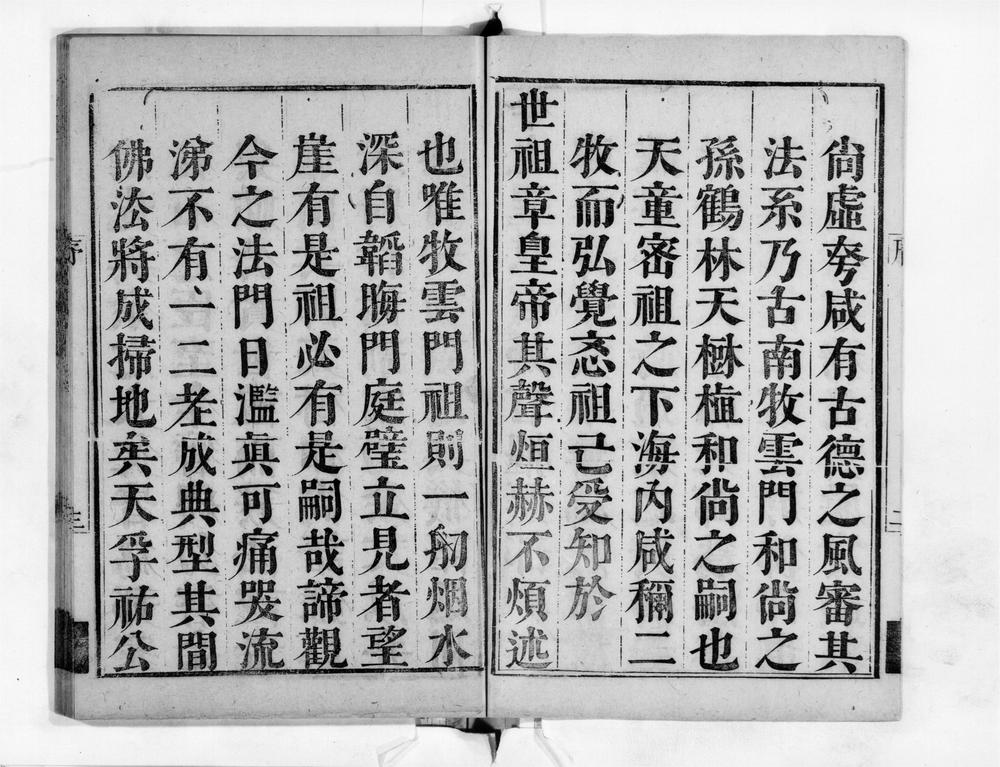 序
二
尙虛夸咸有古德之風審其
法系乃古南牧雲門和尙之
孫鶴林天樹植和尙之嗣也
天童密祖之下海內咸穪二
牧而弘覺忞祖已受知於
世祖章皇帝其聲烜赫不煩述
也唯牧雲門祖則一舠烟水
深自韜晦門庭壁立見者望
崖有是祖必有是嗣哉諦觀
今之法門日濫眞可痛哭流
涕不有一二老成典型其間
佛法將成掃地矣天孚祐公
序
三